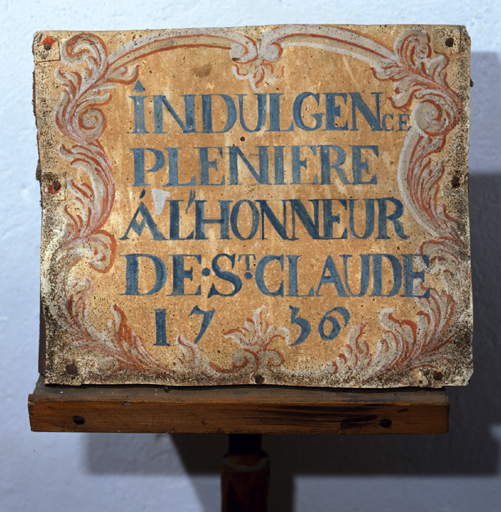 INDULGENCE
PLENIERE
Á L'HONNEUR
DE·ST·CLAUDE
1736